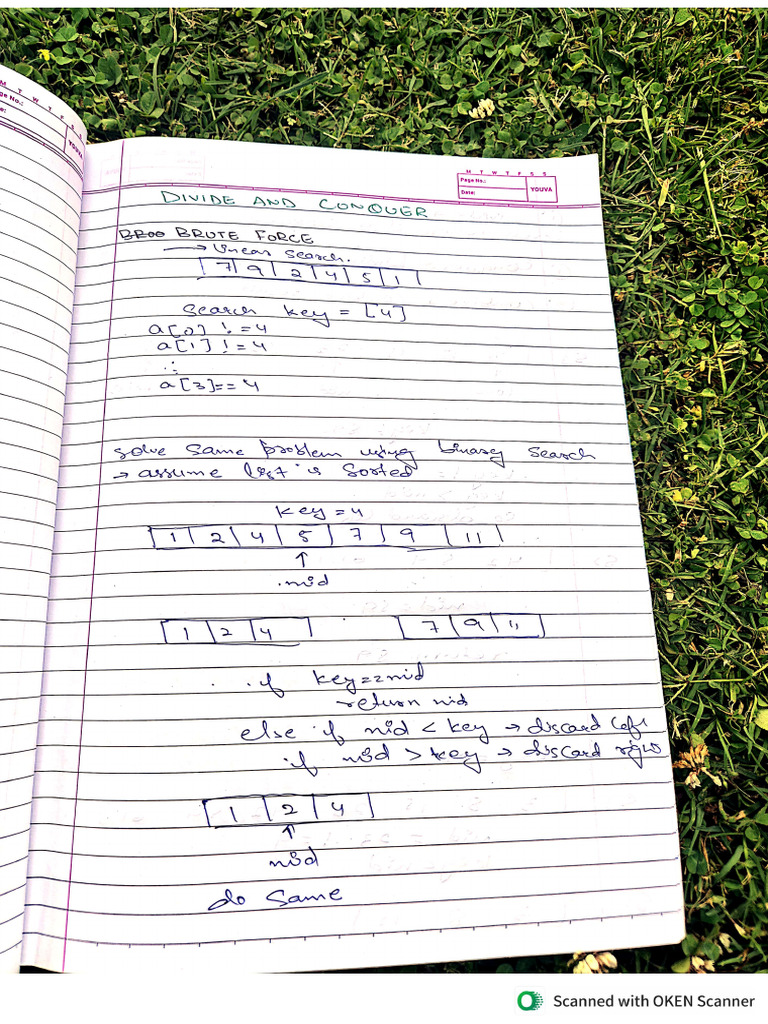 M T W T F S S
ge No.:
YOUVA
M T W T F S S
Page No.:
Date:
YOUVA
DIVIDE AND CONQUER
BROO BRUTE FORCE
→ linear search.
7 9 2 4 5 1
Search key = [4]
a[0] != 4
a[1] != 4
:
a[3]== 4
solve same problem using binary search
→ assume list is sorted
key = 4
1 2 4 5 7 9 11
↑
mid
1 2 4 7 9 11
if key==mid
return mid
else if mid < key → discard left
if mid > key → discard right
1 2 4
↑
mid
do same
Scanned with OKEN Scanner